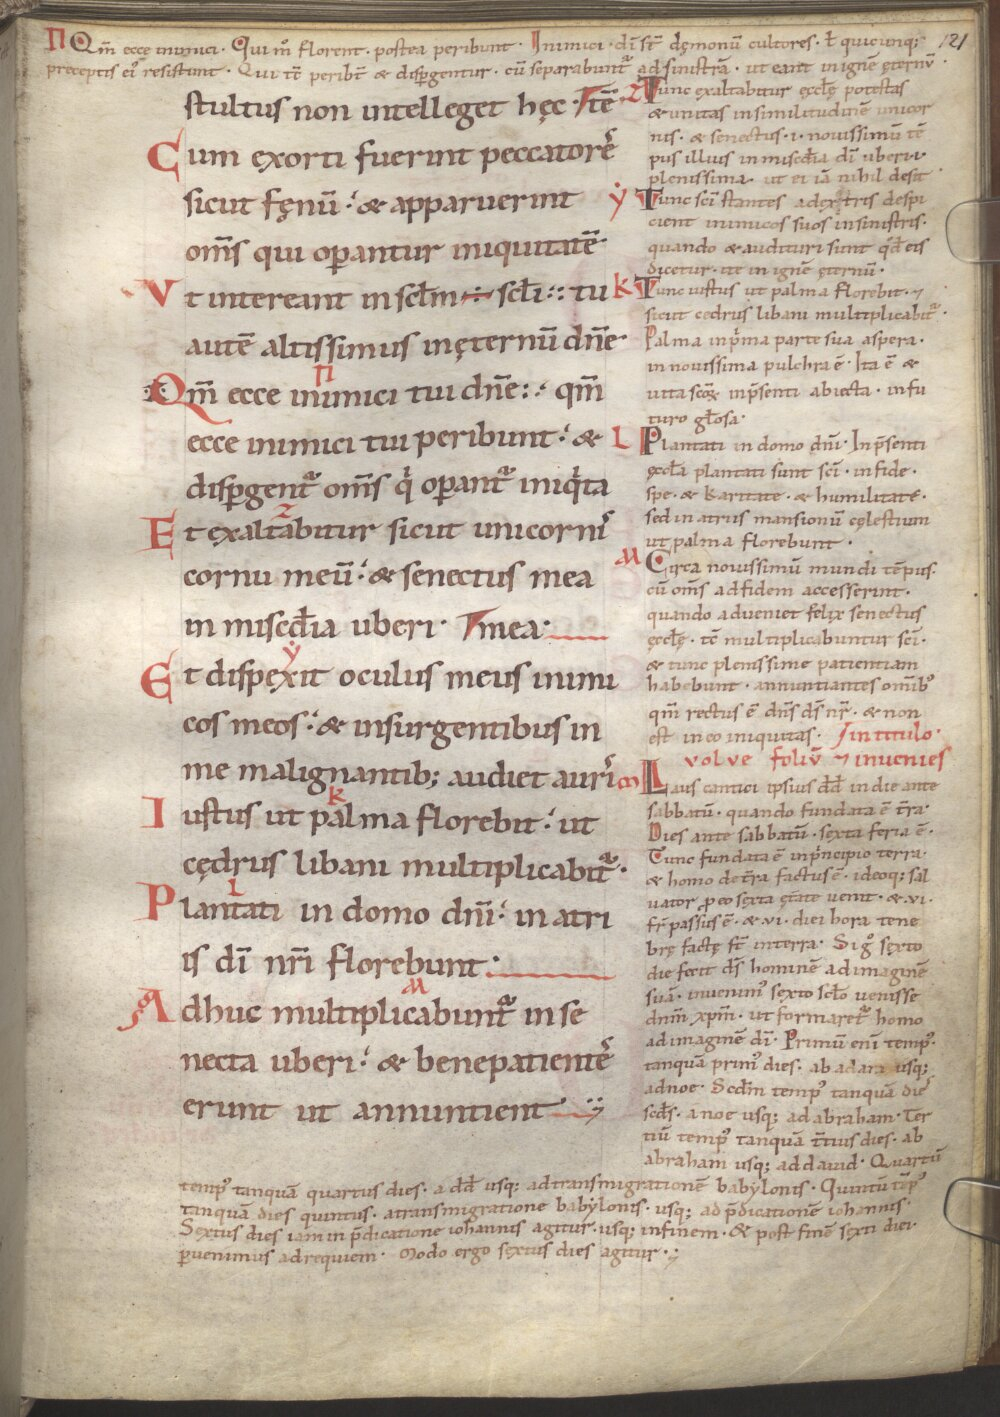 n Qm̄ ecce inimici · Qui m̊ florent · postea peribunt · Inimici · dī st̄ dęmonū cultores · t̄ quicunq; 121
preceptis ei᾽ resistunt · Qui tc̄ peribt̄ & disꝑgentur · cū separabunt᷑ ad sinistrā · ut eant in ignē ęternū ·
stultus non intelleget hęc
Cum exorti fuerint peccatorē
sicut fęnū ⸵ & apparuerint
om̄s qui oꝑantur iniquitatē
Vt intereant in sclm̄ ÷ sclī : tu
autē altissimus in ęternū dn̄e
Qm̄ ecce inimici tui dn̄e : qm̄
ecce inimici tui peribunt ⸵ &
disꝑgent᷑ om̄s q̇ oꝑant᷑ iniq̇ta
Et exaltabitur sicut unicorni
cornu meū ⸵ & senectus mea
in miscd̄ia uberi · mea·
Et dispexit oculus meus inimi
cos meos ⸵ & insurgentibus in
me malignantib; audiet auri
Iustus ut palma florebit ⸵ ut
cędrus libani multiplicabit᷑ ·
Plantati in domo dn̄i ⸵ in atri
is dī nr̄i florebunt ·
Adhuc multiplicabunt᷑ in se
necta uberi ⸵ & bene patientē
erunt ut annuntient
Tunc exaltabitur ęcclę potestas
& unitas in similitudinē unicor
nis · & senectus · i · novissimū tē
pus illius in miscd̄ia dī uberi ·
plenissima · ut ei iā nihil desit
y Tunc scī stantes ad dęxtris despi
cient inimicos suos in sinistris ·
quando & audituri sunt qd̄ eis
dicetur · ite in ignē ęternū ·
k Tunc iustus ut palma florebit · ⁊
sicut cedrus libani multiplicabit᷑ ·
Palma in pͥma parte sua aspera ·
in novissima pulchra ē · Ita ē &
vita scōꝝ in p̄senti abiecta · in fu
turo gl̄osa ·
l Plantati in domo dn̄i · In p̄senti
ęccl̄a plantati sunt scī · in fide ·
spe · & karitate · & humilitate ·
sed in atriis mansionū cęlestium
ut palma florebunt ·
m Circa novissimū mundi tēpus ·
cū om̄s ad fidem accesserint ·
quando adveniet felix senectus
ęccl̄ę · tc̄ multiplicabuntur scī ·
& tunc plenissime patientiam
habebunt · annuntiantes omīb᾽
qm̄ rectus ē dn̄s ds̄ nr̄ · & non
est in eo iniquitas · In titulo ·
volve foliū ⁊ invenies
Laus cantici ipsius dd̄ in die ante
sabbatū · quando fundata ē tr̄a ·
Dies ante sabbatū · sexta feria ē ·
Tunc fundata ē in pͥncipio terra ·
& homo de tr̄a factus ē · ideoq; sal
vator ꝑ eo sęxta ętate venit · & · vi ·
fr̄ passus ē · & · vi · diei hora tene
brę factę st̄ in terra · Sig̊ sęxto
die fecit ds̄ hominē ad imaginē
suā · invenim᾽ sexto scl̄o venisse
dn̄m xp̄m · ut formaret᷑ homo
ad imaginē dī · Primū eni temp᾽ ·
tanquā prim᾽ dies · ab adam usq;
ad noe · Scd̄m temp᾽ tanquā diē
scd̄s · a noe usq; ad abraham · Ter
tiū temp᾽ tanquā t̄tius dies · ab
abraham usq; ad david · Quartū
temp᾽ tanquā quartus dies · a dd̄ usq; ad transmigrationē babylonis · Quintū tēp᾽
tanquā dies quintus · a transmigratione babylonis · usq; ad p̄dicationē iohannis ·
Sextus dies iam in p̄dicatione iohannis agitur · usq; in finem · & post finē sexti diei ·
ꝑvenimus ad requiem · Modo ergo sęxtus dies agitur ·